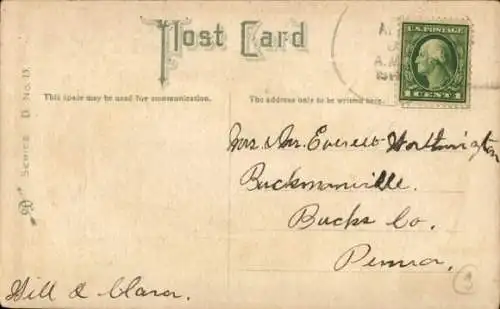 Post Card
This space may be used for communication.
The address only to be written here.
U.S. POSTAGE
1 CENT 1
A.M.
191
Mrs. Mr. Everett Worthington
Buckmanville.
Bucks Co.
Penna.
Will & Clara.
SERIES D No. 13.